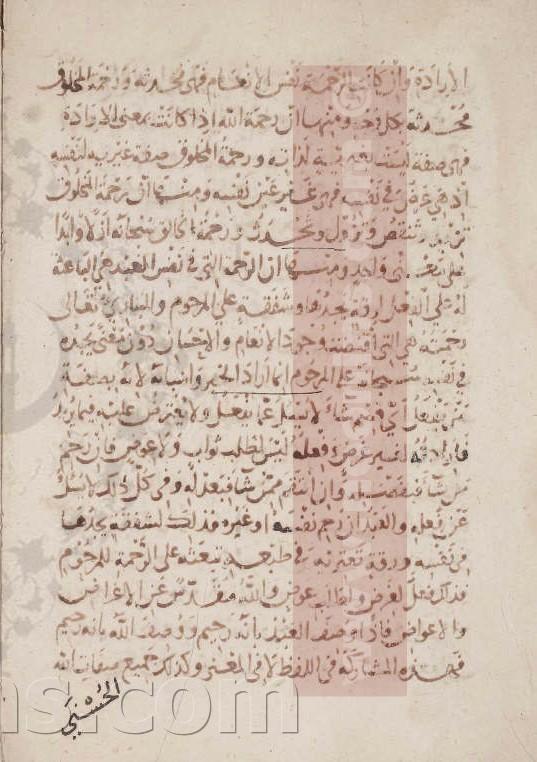 الإرادة وإن كانت الرحمة نفس الإنعام فهي محدثة ورحمة المخلوق
محدثة بكل وجه ومنها أن رحمة الله إذا كانت بمعنى الإرادة
فهي صفة ليست غيرية لذاته ورحمة المخلوق صفة غيرية لنفسه
إذ هي عرض في نفسه فهي غير عين نفسه ومنها أن رحمة المخلوق
تزيد وتنقص وتزول وتتجدد ورحمة الخالق سبحانه أزلا وأبدا
على معنى واحد ومنها أن الرحمة التي في نفس العبد هي الباعثة
له على الفعل لرقة يجدها وشفقة على المرحوم والباري تعالى
رحمته هي التي اقتضت وجود الإنعام والإحسان دون معنى يجده
في نفسه على المرحوم إنما أراد الخير وأنشأه لأنه بصفة
من يفعل أي قسم شاء لا يسئل عما يفعل ولا يعترض عليه فيما يريد
فإرادته لغير عرض وفعله ليس لطلب ثواب ولا عوض فإن رحم
من شاء فبفضله وإن انتقم ممن شاء فبعدله وفي كل ذلك لا يسئل
عن فعله والعبد إن رحم نفسه أو غيره فذلك لشفقة يجدها
في نفسه ورقة تعتريه في طبعه تبعثه على الرحمة للمرحوم
فذلك فعل لغرض وطالب عوض والله مقدس عن الأعراض
والأعواض فإذا وصف العبد بأنه رحيم ووصف الله بأنه رحيم
فهذه المشاركة في اللفظ لا في المعنى وكذلك جميع صفات الله
الحسنى
ns.com